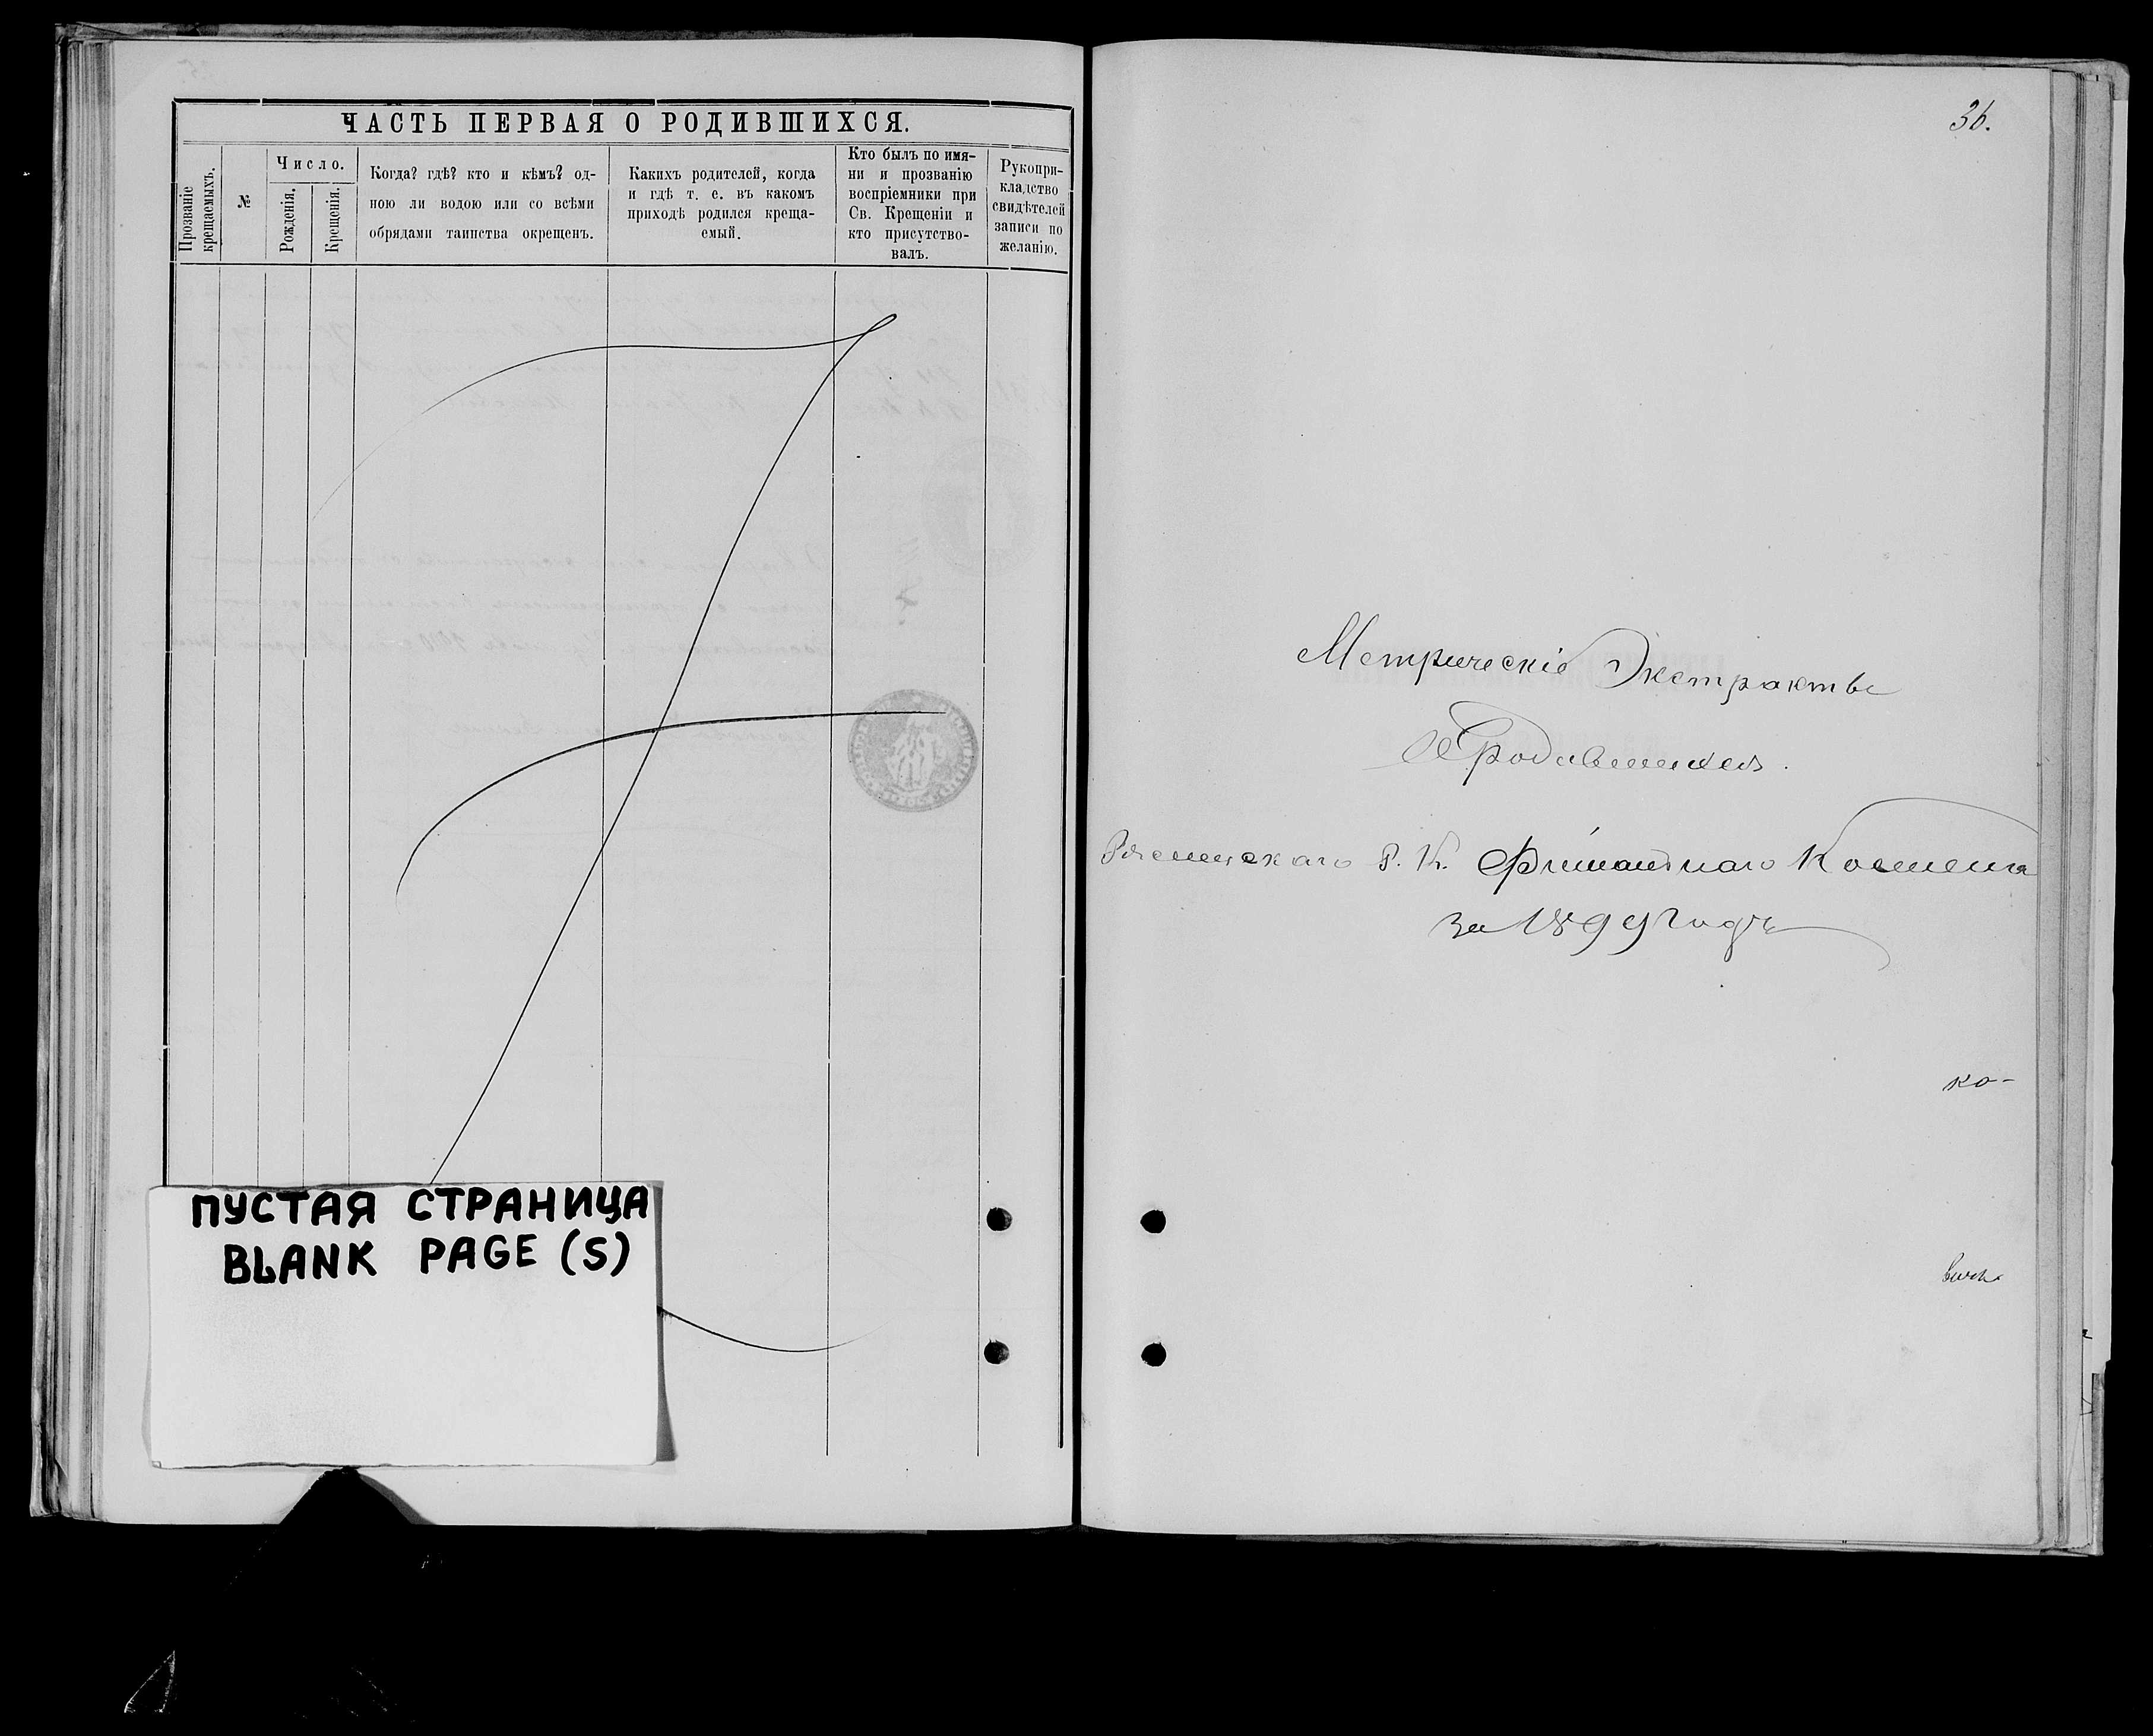 ЧАСТЬ ПЕРВАЯ О РОДИВШИХСЯ.
Прозваніе
крещаемыхъ.
№
Число.
Рожденія.
Крещенія.
Когда? гдѣ? кто и кѣмъ? од-
ною ли водою или со всѣми
обрядами таинства окрещенъ.
Какихъ родителей, когда
и гдѣ т. е. въ какомъ
приходѣ родился креща-
емый.
Кто былъ по имя-
ни и прозванію
воспріемники при
Св. Крещеніи и
кто присутство-
валъ.
Рукопри-
кладство
свидѣтелей
записи по
желанію.
ПУСТАЯ СТРАНИЦА
BLANK PAGE (S)
36.
Метрическіе Экстракты
О родившихся.
Р. К. Филіальнаго Костела
за 1899 годъ
ко-
вичъ